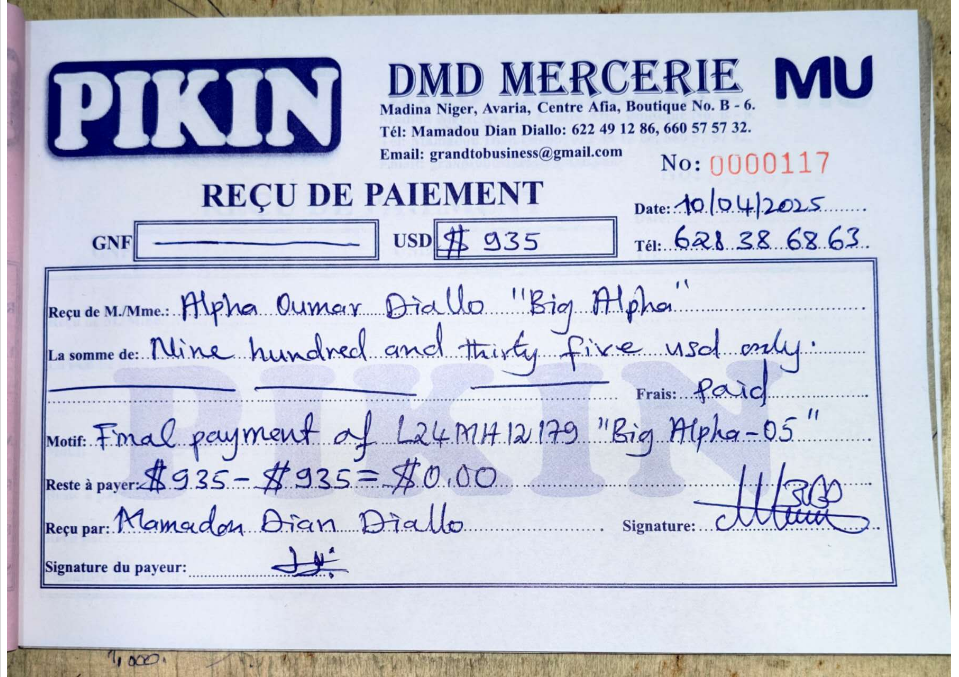 PIKIN
DMD MERCERIE
MU
Madina Niger, Avaria, Centre Afia, Boutique No. B - 6.
Tél: Mamadou Dian Diallo: 622 49 12 86, 660 57 57 32.
Email: grandtobusiness@gmail.com
No: 0000117
REÇU DE PAIEMENT
Date: 10/04/2025
GNF USD $ 935
Tél: 628 38 68 63
Reçu de M./Mme.: Alpha Oumar Diallo "Big Alpha"
La somme de: Nine hundred and thirty five usd only.
Frais: Paid
Motif: Final payment of L24MH12179 "Big Alpha-05"
Reste à payer: $935 - $935 = $0.00
Reçu par: Mamadou Dian Diallo
Signature:
Signature du payeur:
PIKIN